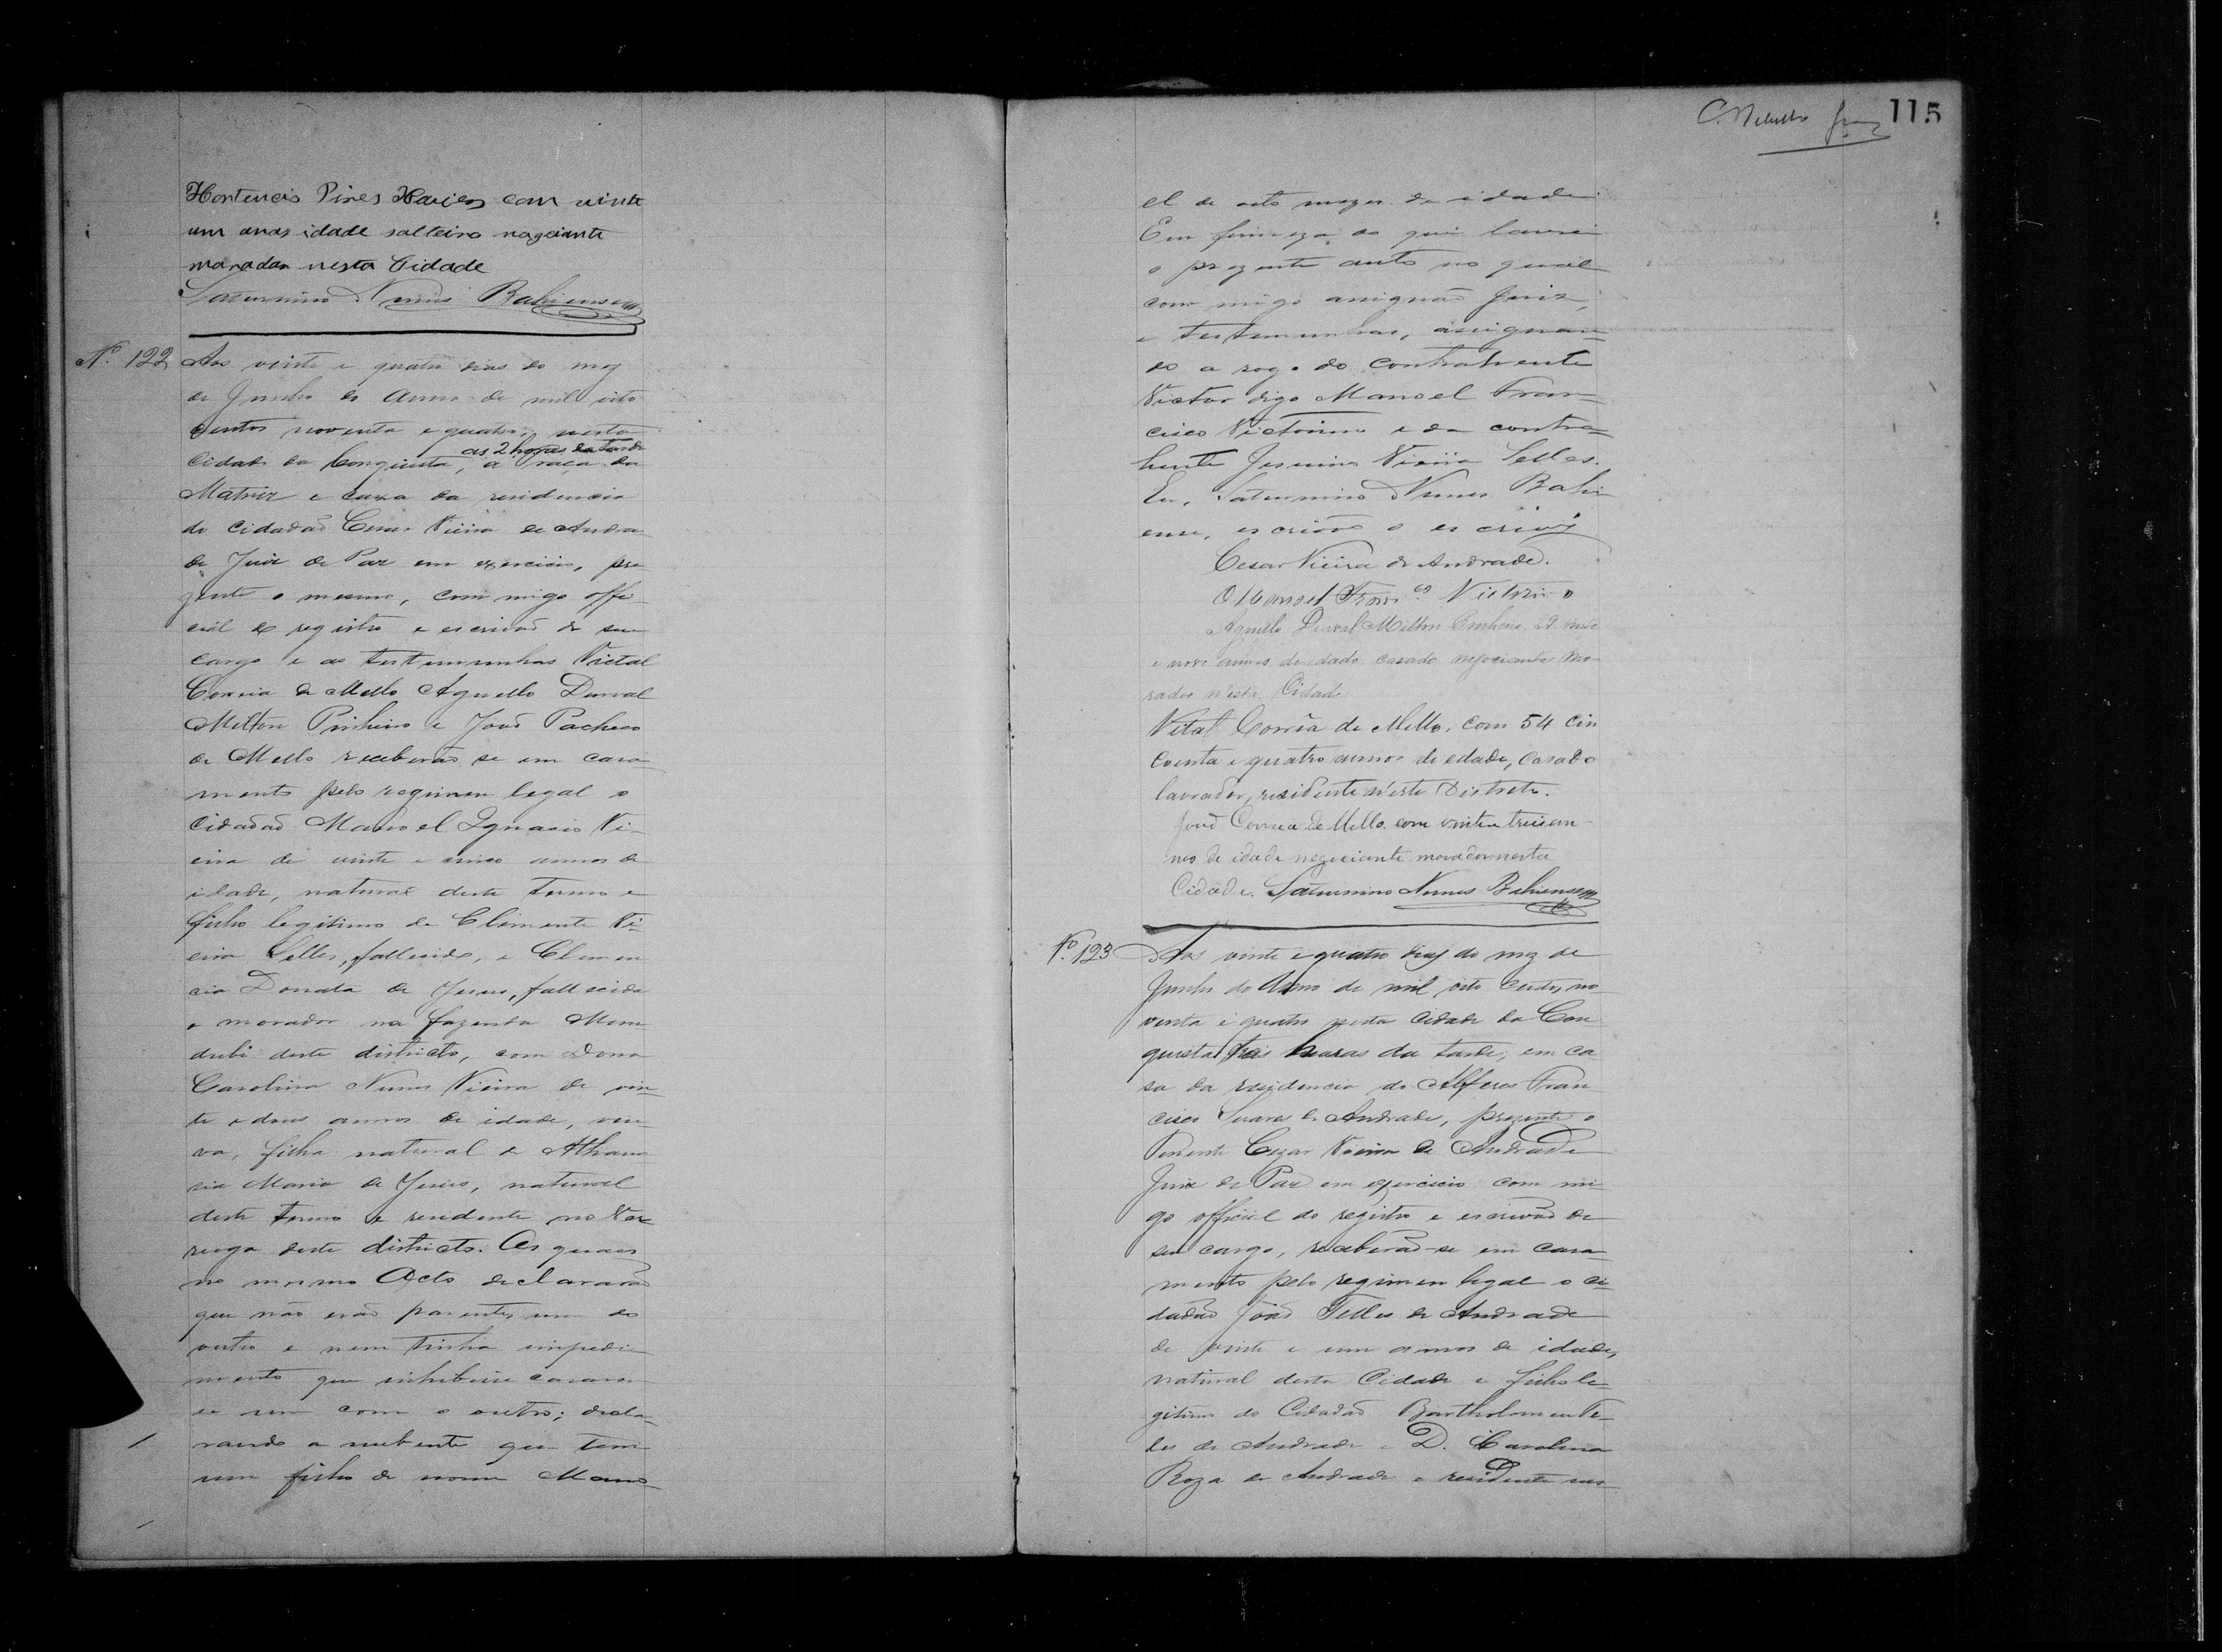 Hortencio Pires Xavier com vinte
um anos idade salteiro nogociante
marador nesta Cidade
Saturnino Nunes Bahiense
Nº 122 Aos vinte e quatro dias do mez
de Junho do Anno de mil oito
centos noventa e quatro, nesta
as 2 horas da tarde
Cidade da Conquista, a Praça da
Matriz e caza da residencia
do Cidadaõ Cesar Vieira de Andra
de Juiz de Paz em exercicio, pre
zente o mesmo, com migo offi-
cial do registro e escrivaõ de seu
cargo e as testemunhas Victal
Correia de Mello Agnello Durval
Milton Pinheiro e Joaõ Pacheco
de Mello receberaõ se em casa
mento pelo regimen legal o
Cidadaõ Manoel Ignacio Vi-
eira de vinte e cinco annos de
idade, natural deste termo e
filho legitimo de Clemente Vi-
eira Telles, fallecido, e Clemen
cia Donata de Jesus, fallecida
e morador na fazenda Mun
dubi deste districto, com Dona
Carolina Nunes Vieira de vin-
te e dous annos de idade, viu-
va, filha natural de Athana
sia Maria de Jesus, natural
deste termo e residente no Ver
ruga deste districto. Os quaes
no mesmo Acto declararaõ
que não eraõ parentes um do
outro e nem tinha impedi-
mento que inhibisse casarem
se um com o outro; decla-
rando a nubente que tem
um filho de nome Mano
C. Vieira 115
el de oito mezes de idade
Em firmeza do que lavrei
o prezente auto no qual
com migo assignaõ Juiz,
e testemunhas, assignan-
do a rogo do contrahente
Victor digo Manoel Fran-
cisco Victorino e da contra-
hente Jesuino Vieira Telles.
Eu, Saturnino Nunes Bahi
ense, escrivão o escrivi
Cesar Vieira de Andrade.
Manoel Franco Victorino
Agnello Durval Milton Pinheiro 29 vinte
e nove annos de edade casado negociante mo-
rador n'esta Cidade
Vital Corrêa de Mello, com 54 cin
coenta e quatro annos de edade, casado
lavrador, residente n'este Distrito.
Joaõ Correia de Mello com vinte e treis an-
nos de idade negociante morador nesta
Cidade. Saturnino Nunes Bahiense
Nº 123 Aos vinte e quatro dias do mez de
Junho do Anno de mil oito centos no-
venta e quatro nesta Cidade da Con
quista treis horas da tarde, em ca
sa da residencia do Alferes Fran
cisco Soares de Andrade, prezente o
Tenente Cezar Vieira de Andrade
Juiz de Paz em exercicio com mi
go official do registro e escrivaõ de
seu cargo, receberaõ-se em casa
mento pelo regimen legal o ci-
dadaõ Joaõ Telles de Andrade
de vinte e um annos de idade,
natural desta Cidade e filho le-
gitimo do Cidadaõ Bartholomeu Te-
les de Andrade e D. Carolina
Roza de Andrade e residente nes